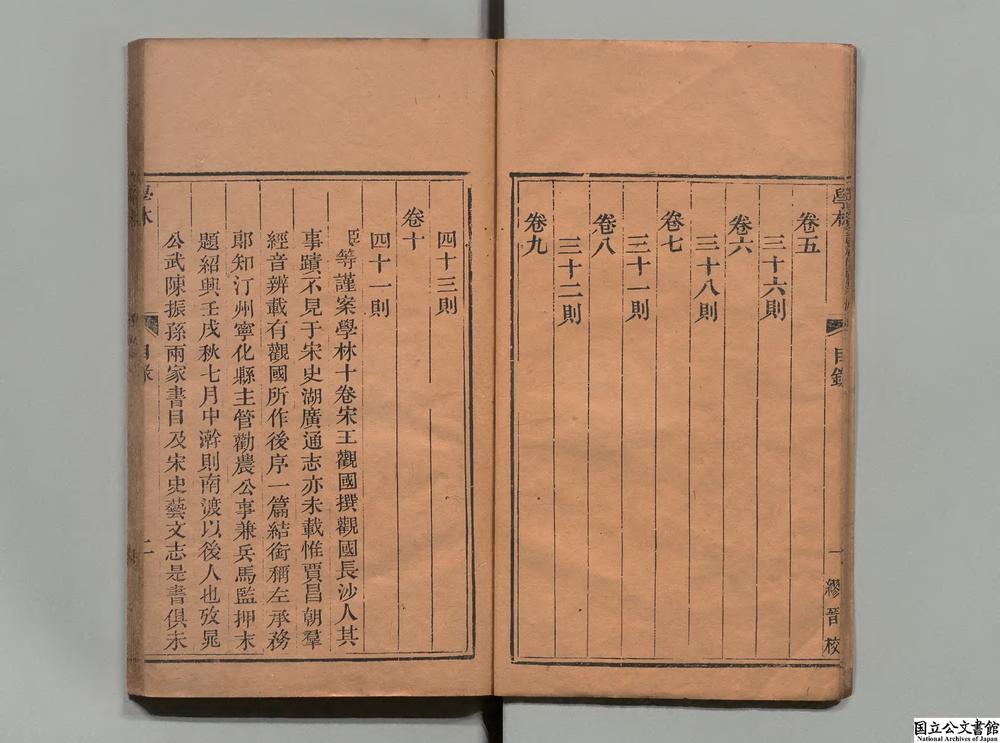 學林
目錄
一
繆晉校
卷五
三十六則
卷六
三十八則
卷七
三十一則
卷八
三十二則
卷九
四十三則
卷十
四十一則
臣等謹案學林十卷宋王觀國撰觀國長沙人其
事蹟不見于宋史湖廣通志亦未載惟賈昌朝羣
經音辨載有觀國所作後序一篇結銜稱左承務
郞知汀州寧化縣主管勸農公事兼兵馬監押末
題紹興壬戌秋七月中澣則南渡以後人也攷晁
公武陳振孫兩家書目及宋史藝文志是書俱未
學林
目錄
二
国立公文書館
National Archives of Japan